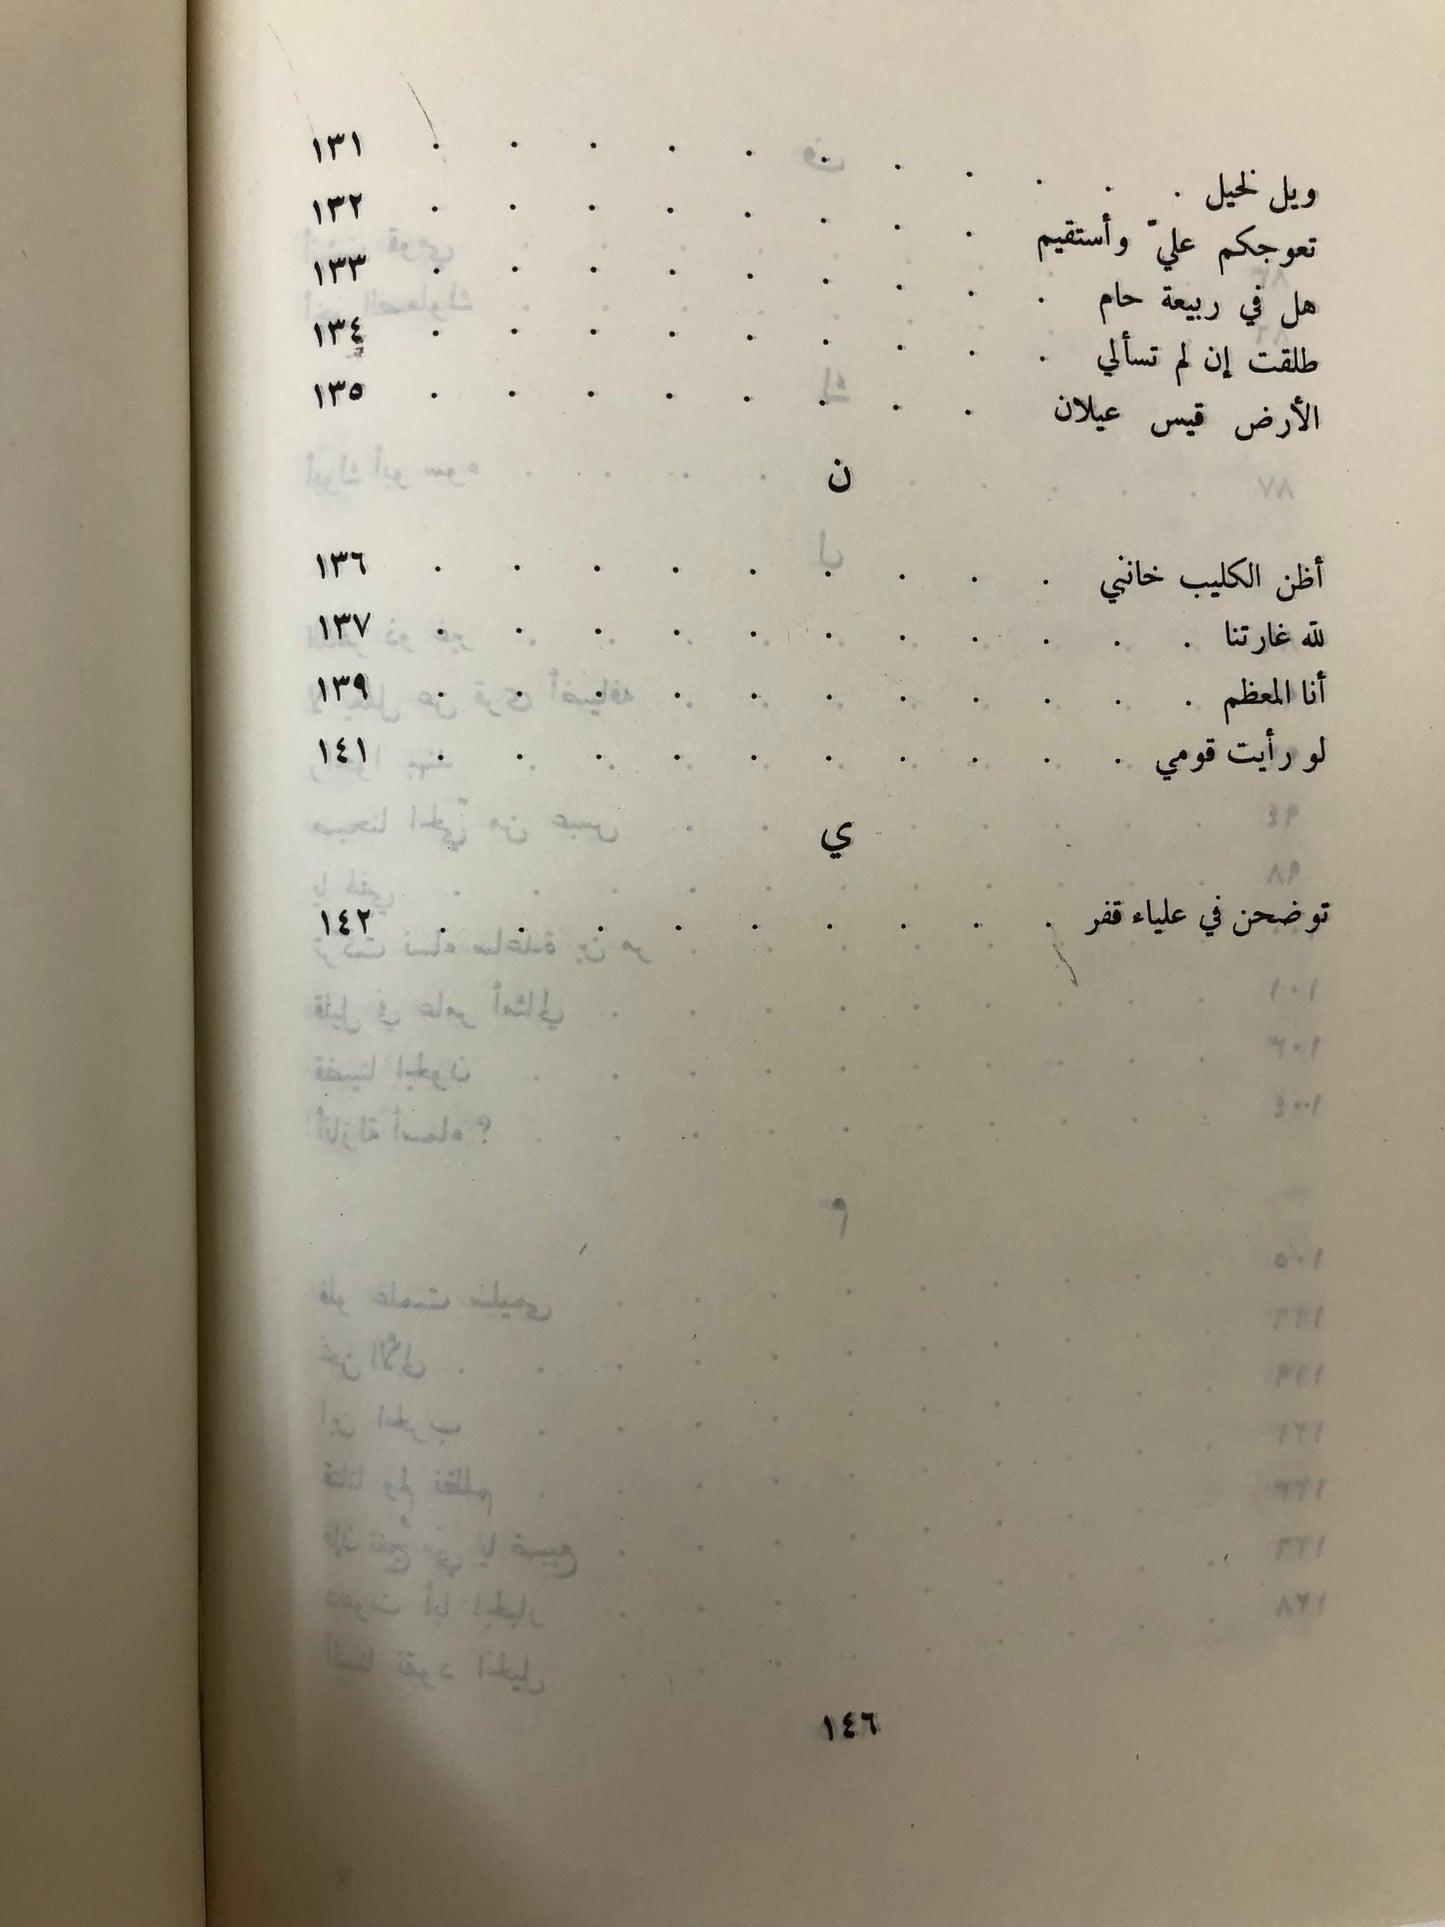 ويل لخيل . . . . . . . . . . . ١٣١
تعوجكم عليّ وأستقيم . . . . . . . . ١٣٢
هل في ربيعة حام . . . . . . . . . ١٣٣
طلقت إن لم تسألي . . . . . . . . . ١٣٤
الأرض قيس عيلان . . . . . . . . ١٣٥
ن
أظن الكليب خانني . . . . . . . . . ١٣٦
لله غارتنا . . . . . . . . . . . ١٣٧
أنا المعظم . . . . . . . . . . . ١٣٩
لو رأيت قومي . . . . . . . . . . ١٤١
ي
توضحن في علياء قفر . . . . . . . . . ١٤٢
١٤٦